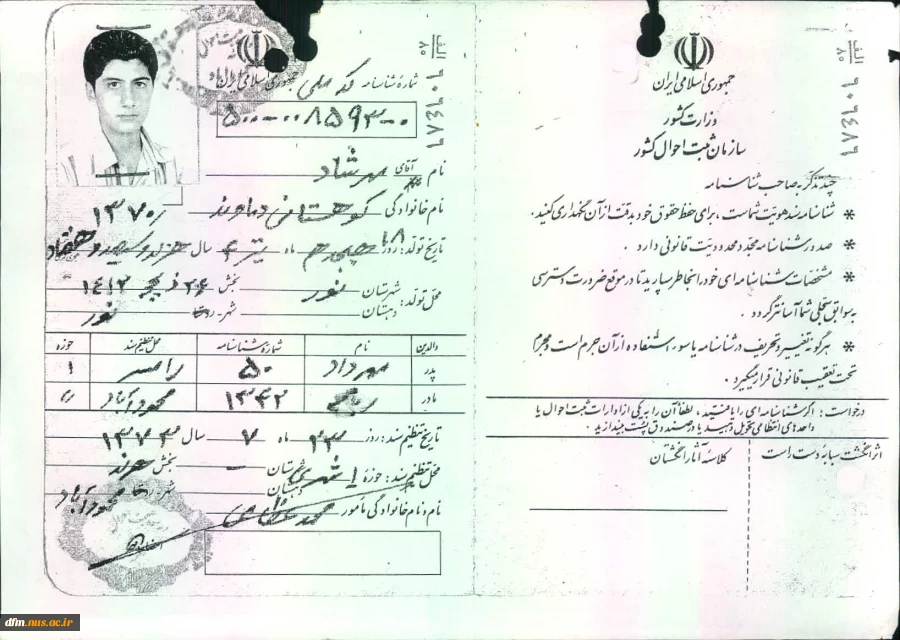 جمهوری اسلامی ایران
شماره شناسنامه
نام آقای مهرشاد
نام خانوادگی کوهستانی دماوند
۱۳۷۰/
تاریخ تولد: روز ۱۸ چهارم ماه تیر ۴ سال هزار و سیصد و هفتاد
محل تولد: شهرستان نور بخش
دهستان شهر نور
والدین نام شماره شناسنامه محل تنظیم سند حوزه
پدر مهرداد ۵۰ رامسر ۱
مادر ۱۳۴۲ محمودآباد
تاریخ تنظیم سند: روز ۲۳ ماه ۷ سال ۱۳۷۳
محل تنظیم سند: حوزه ۱ شهری شهرستان - بخش
دهستان شهر محمودآباد
نام و نام خانوادگی مأمور محمد
الف
۸۰
۶۷۴۶۰۹
جمهوری اسلامی ایران
وزارت کشور
سازمان ثبت احوال کشور
چند تذکر به صاحب شناسنامه
* شناسنامه سند هویت شماست، برای حفظ حقوق خود بدقت از آن نگهداری کنید.
* صدور شناسنامه مجدد محدودیت قانونی دارد.
* مشخصات شناسنامه ای خود را بخاطر بسپارید تا در موقع ضرورت دسترسی
به سوابق سجلی شما آسانتر گردد.
* هرگونه تغییر و تحریف در شناسنامه یا سوء استفاده از آن جرم است و مجرم
تحت تعقیب قانونی قرار میگیرد.
درخواست: اگر شناسنامه ای را یافتید، لطفاً آن را به یکی از ادارات ثبت احوال یا
واحدهای انتظامی تحویل دهید یا در صندوق پست بیندازید.
اثر انگشت سبابه دست راست
کلاسه آثار انگشتان
dfm.nus.ac.ir